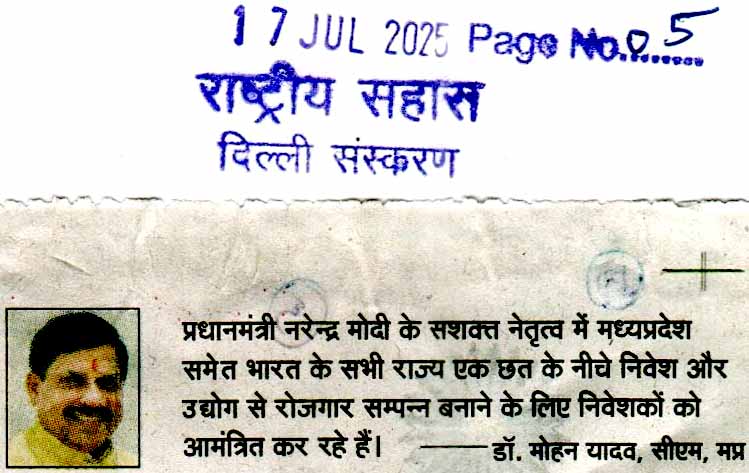 17 JUL 2025 Page No.05
राष्ट्रीय सहास
दिल्ली संस्करण
प्रधानमंत्री नरेन्द्र मोदी के सशक्त नेतृत्व में मध्यप्रदेश
समेत भारत के सभी राज्य एक छत के नीचे निवेश और
उद्योग से रोजगार सम्पन्न बनाने के लिए निवेशकों को
आमंत्रित कर रहे हैं। —— डॉ. मोहन यादव, सीएम, मप्र